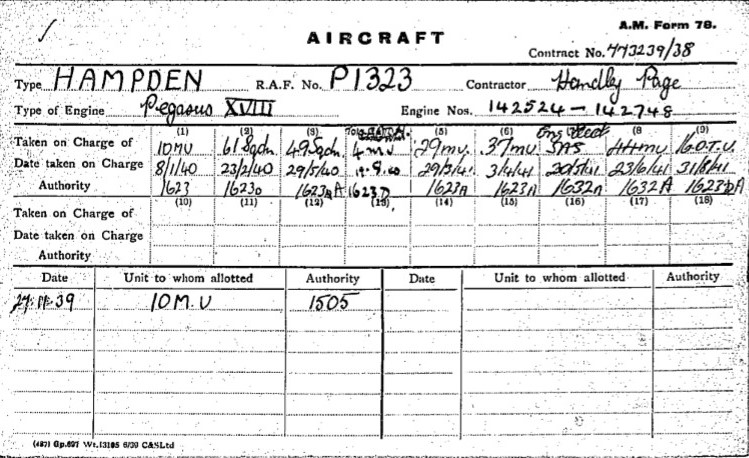 A.M. Form 78.
AIRCRAFT
Contract No. 773239/38
Type HAMPDEN R.A.F. No. P1323 Contractor Handley Page
Type of Engine Pegasus XVIII Engine Nos. 142524 - 142748
(1) (2) (3) (5) (6) (8 (9)
Taken on Charge of 10MU 61 Sqdn. 49 Sqdn. 4 M.U 29 MU. 37 MU. SAS 44 MU 16 O.T.U.
Date taken on Charge 8/1/40 23/2/40 29/5/40 29/3/41 3/4/41 20/5/41 23/6/41 31/8/41
Authority 1623 1623D 1623 A 1623D 1623A 1623A 1632A 1632A
(10) (11) (12) (13) (14) (15) (16) (17) (18)
Taken on Charge of
Date taken on Charge
Authority
Date Unit to whom allotted Authority Date Unit to whom allotted Authority
39 10 M.U 1505
(487) Gp.697 Wt.13105 6/39 C&SLtd